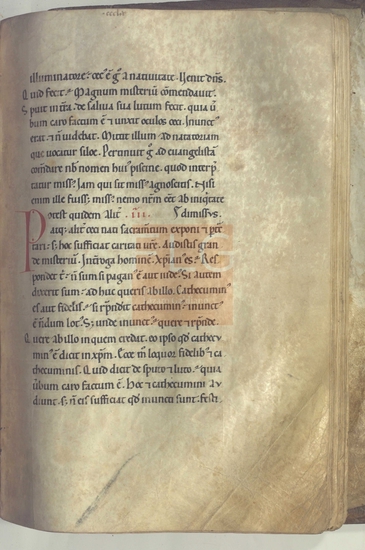 illuminatore. cec' ē g̃ a nativitate. Venit dn̄s.
Quid fecit. Magnum misteriū cōmendavit.
Spuit in trā. de saliva sua lutum fecit. quia ū
bum caro factum ē. & unxit oculos ceci. Inunct'
erat. & n̄ videbat. Mittit illum ad natatoriam
que vocatur siloe. Pertinuit g̃ ad evangelistā
cōmendare nb̄ nomen hui' piscine. quod interp̃
tatur miss'. Iam qui sit miss' agnoscitis. Nisi
enim ille fuiss; miss'. nemo nr̄m eēt ab iniq'tate
Potest quidem aliť .iii. dimissus.
atq; aliť ceci nati sacramtum exponi & p̃tr
tari. s; hoc sufficiat caritati vr̄e. Audistis gran
de misteriū. Int̃roga hominē. Xp̄ian' es. Res
pondet t'. n̄ sum si pagan' ē aut iude'. Si autem
dixerit sum. ad huc queris ab illo. Cathecumin'
es aut fidelis. si r̃pnd̃it cathecumin'. inunct'
ē n̄dum lot'. S; unde inunct'. quere & r̃pnd̃e.
Quere ab illo in quem credit. eo ipso qd̄ cathecu
min' ē dicit in xp̄m. Ecce m̊ loquor fidelib; & ca
thecuminis. Quid dicit de sputo & luto. quia
ūbum caro factum ē. Hoc & cathecumini au
diunt. s; n̄ eis sufficiat qd̄ inuncti sunt. festi